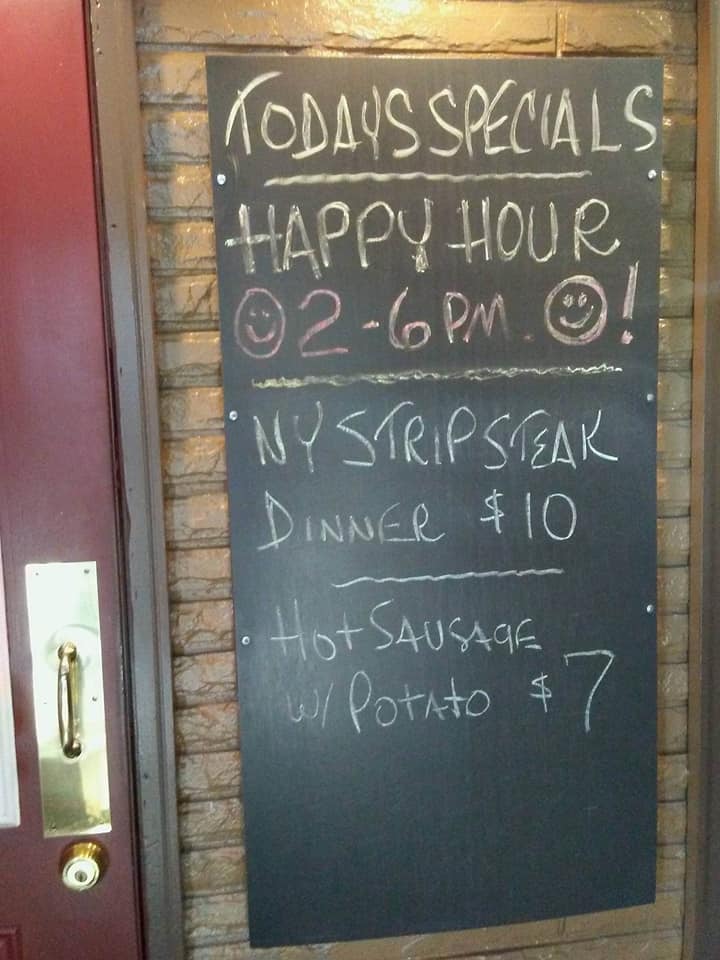 TODAYS SPECIALS
HAPPY HOUR
2-6 PM. !
NY STRIP STEAK
DINNER $10
Hot SAUSAGE
W/ POtAtO $7